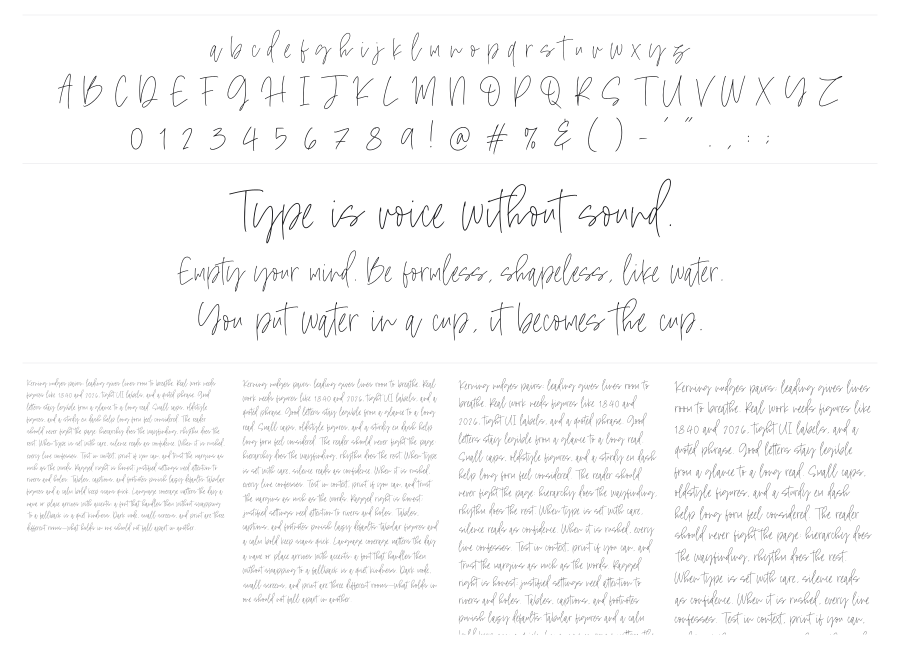 a b c d e f g h i j k l m n o p q r s t u v w x y z
A B C D E F G H I J K L M N O P Q R S T U V W X Y Z
0 1 2 3 4 5 6 7 8 9 ! @ # % & ( ) - ' " . , : ;
Type is voice without sound.
Empty your mind. Be formless, shapeless, like water.
You put water in a cup, it becomes the cup.
Kerning nudges pairs; leading gives lines room to breathe. Real work needs
figures like 1840 and 2026, tight UI labels, and a quoted phrase. Good
letters stay legible from a glance to a long read. Small caps, oldstyle
figures, and a sturdy en dash help long form feel considered. The reader
should never fight the page: hierarchy does the wayfinding, rhythm does the
rest. When type is set with care, silence reads as confidence. When it is rushed,
every line confesses. Test in context, print if you can, and trust the margins as
much as the words. Ragged right is honest; justified settings need attention to
rivers and holes. Tables, captions, and footnotes punish lazy defaults; tabular
figures and a calm bold keep scans quick. Language coverage matters the day a
name or place arrives with accents; a font that handles them without snapping
to a fallback is a quiet kindness. Dark mode, small screens, and print are three
different rooms—what holds in one should not fall apart in another.
Kerning nudges pairs; leading gives lines room to breathe. Real
work needs figures like 1840 and 2026, tight UI labels, and a
quoted phrase. Good letters stay legible from a glance to a long
read. Small caps, oldstyle figures, and a sturdy en dash help
long form feel considered. The reader should never fight the page:
hierarchy does the wayfinding, rhythm does the rest. When type
is set with care, silence reads as confidence. When it is rushed,
every line confesses. Test in context, print if you can, and trust
the margins as much as the words. Ragged right is honest;
justified settings need attention to rivers and holes. Tables,
captions, and footnotes punish lazy defaults; tabular figures and
a calm bold keep scans quick. Language coverage matters the day
a name or place arrives with accents; a font that handles them
without snapping to a fallback is a quiet kindness. Dark mode,
small screens, and print are three different rooms—what holds in
one should not fall apart in another.
Kerning nudges pairs; leading gives lines room to
breathe. Real work needs figures like 1840 and
2026, tight UI labels, and a quoted phrase. Good
letters stay legible from a glance to a long read.
Small caps, oldstyle figures, and a sturdy en dash
help long form feel considered. The reader should
never fight the page: hierarchy does the wayfinding,
rhythm does the rest. When type is set with care,
silence reads as confidence. When it is rushed, every
line confesses. Test in context, print if you can, and
trust the margins as much as the words. Ragged
right is honest; justified settings need attention to
rivers and holes. Tables, captions, and footnotes
punish lazy defaults; tabular figures and a calm
Kerning nudges pairs; leading gives lines
room to breathe. Real work needs figures like
1840 and 2026, tight UI labels, and a
quoted phrase. Good letters stay legible
from a glance to a long read. Small caps,
oldstyle figures, and a sturdy en dash
help long form feel considered. The reader
should never fight the page: hierarchy does
the wayfinding, rhythm does the rest.
When type is set with care, silence reads
as confidence. When it is rushed, every line
confesses. Test in context, print if you can,